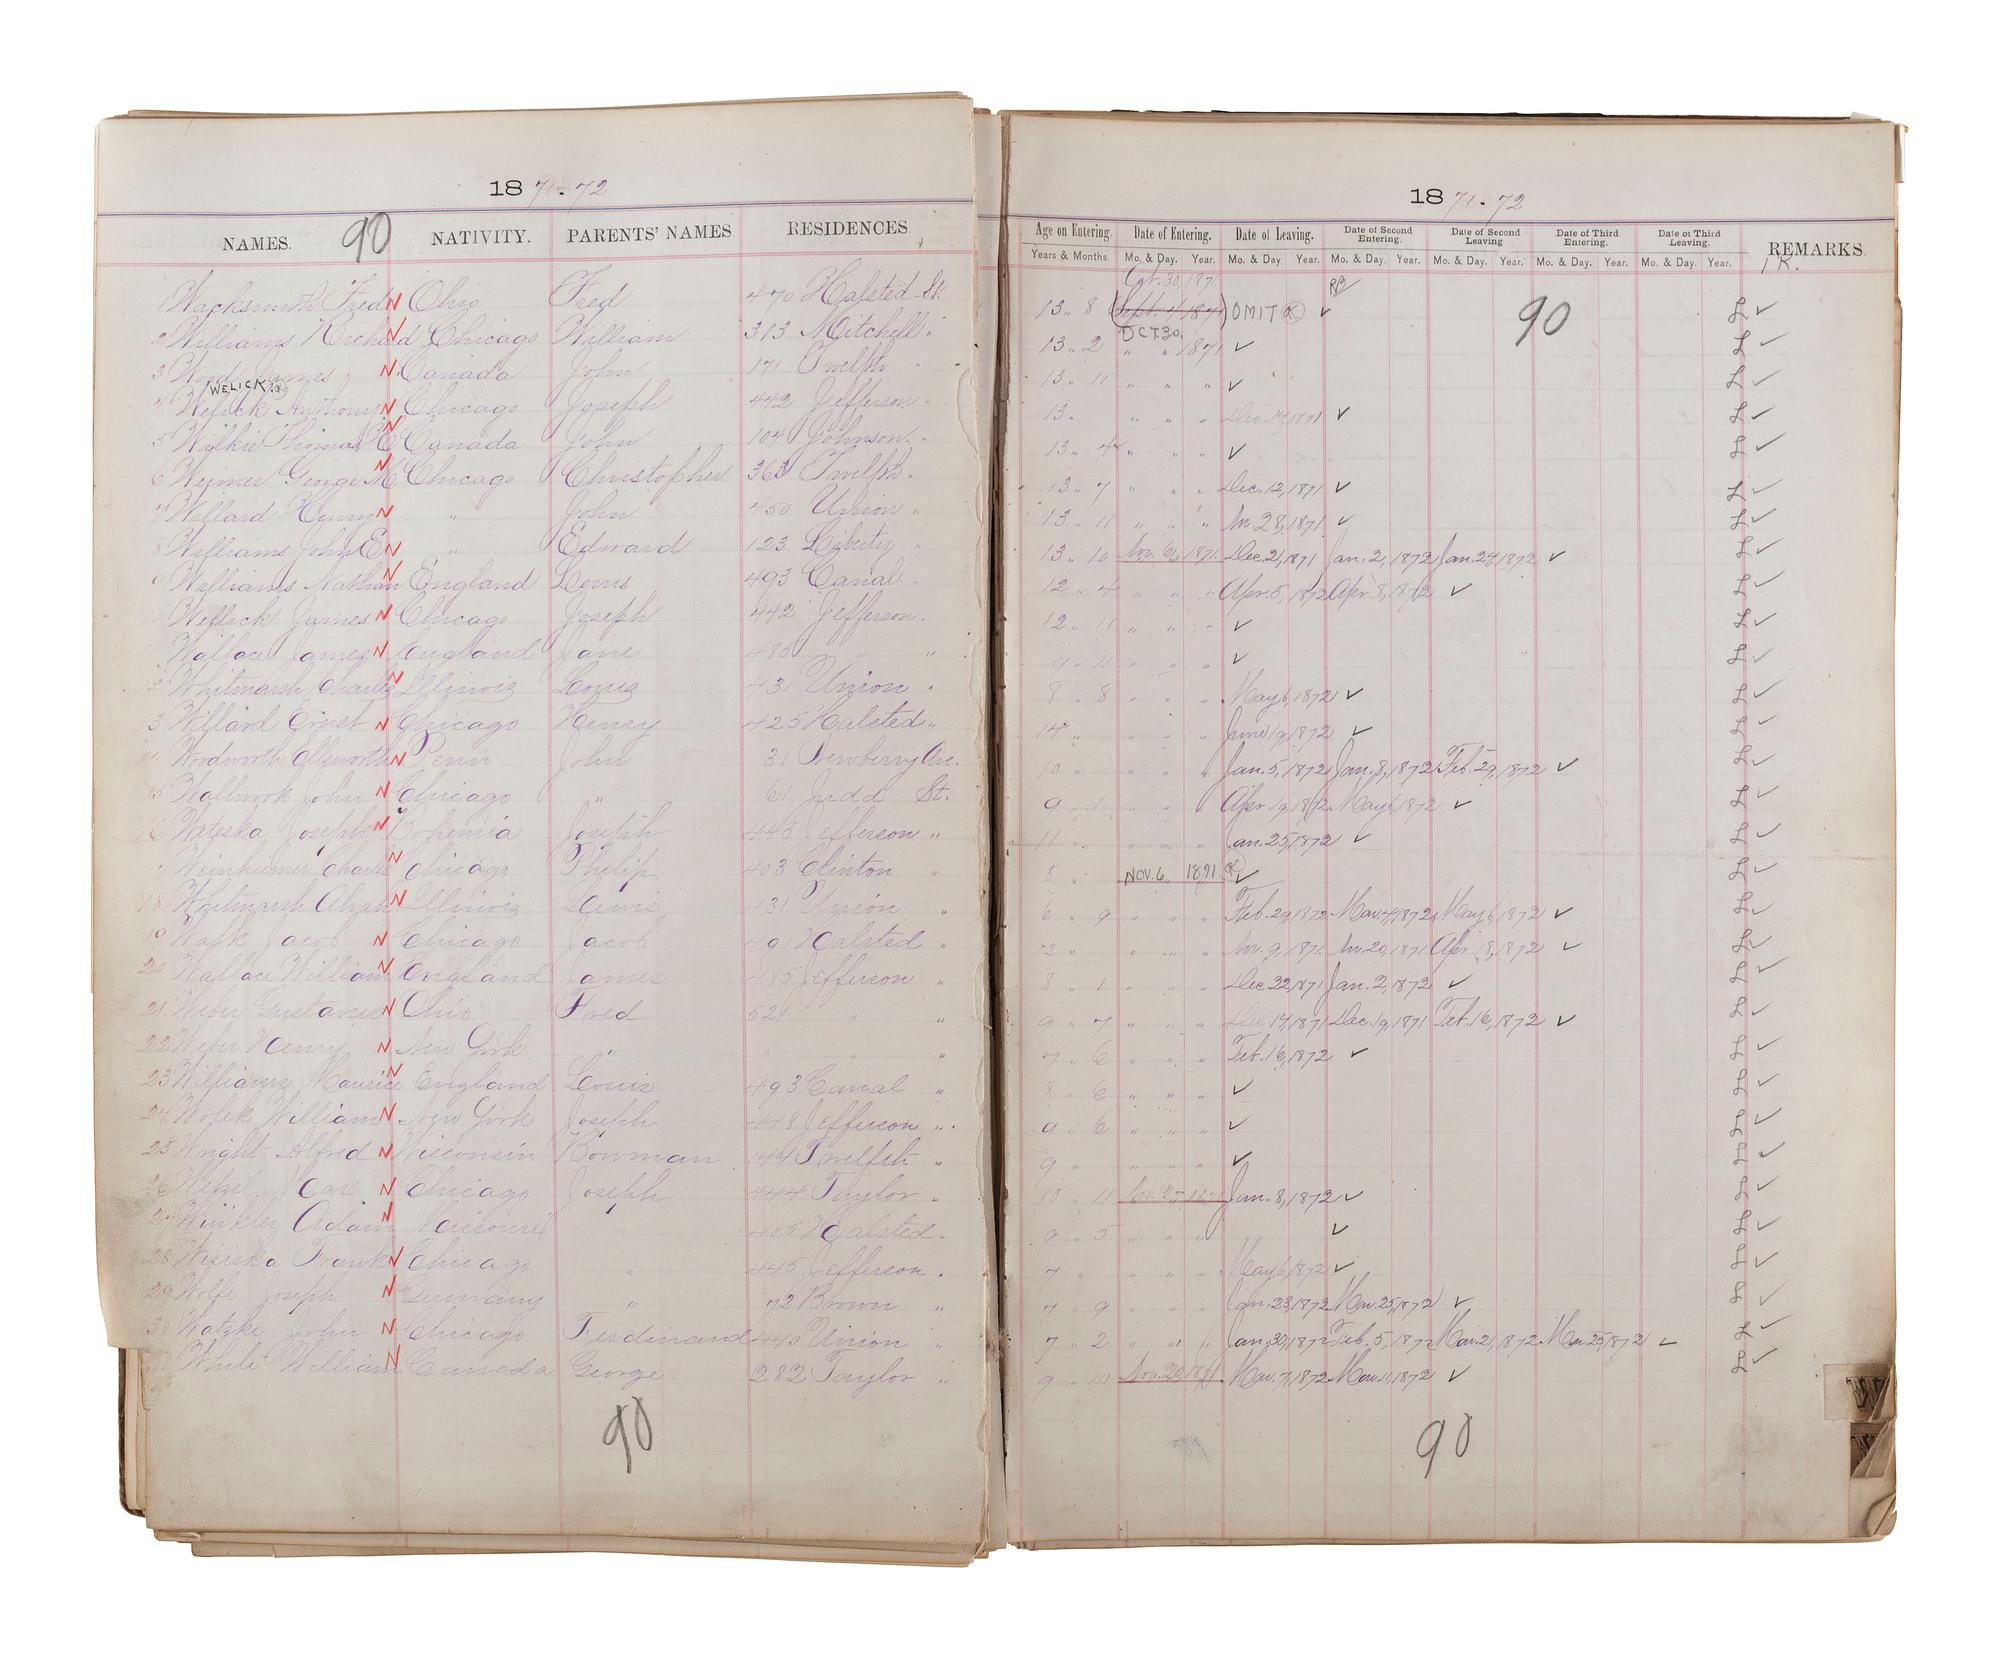 1871-72
NAMES. 90 NATIVITY. PARENTS' NAMES. RESIDENCES.
1 Wacksmuth Fred N Ohio Fred 470 Halsted St.
2 Williams Richard N Chicago William 313 Mitchell "
3 Wood James N Canada John 171 Twelfth "
WELICK
4 Wellick Anthony N Chicago Joseph 442 Jefferson "
5 Wilkie Thomas N Canada John 104 Johnson "
6 Weimer George M N Chicago Christopher 363 Twelfth "
7 Willard Henry N " John 450 Union "
8 Williams John E N " Edward 123 Liberty "
9 Williams Nathan N England Louis 493 Canal "
10 Wellick James N Chicago Joseph 442 Jefferson "
11 Wallace James N England Jane 485 " "
12 Whitmarsh Charles N Illinois Louis 431 Union "
13 Willard Ernst N Chicago Henry 425 Halsted "
14 Woodworth Ellsworth N Penn John 31 Newberry Ave.
15 Wallwork John N Chicago " 61 Judd St.
16 Wateska Joseph N Bohemia Joseph 445 Jefferson "
17 Weinheimer Charles N Chicago Philip 403 Clinton "
18 Whitmarsh Alvah N Illinois Lewis 431 Union "
19 Walk Jacob N Chicago Jacob 491 Halsted "
20 Wallace William N England James 485 Jefferson "
21 Weber Gustavus N Ohio Fred 521 " "
22 Weber Henry N New York " " " "
23 Williams Maurice N England Louis 493 Canal "
24 Wolek William N New York Joseph 448 Jefferson "
25 Wright Alfred N Wisconsin Bowman 144 Twelfth "
26 Wetzel N Chicago Joseph 444 Taylor "
27 Winkler Adam N Missouri " 405 Halsted "
28 Wisiska Frank N Chicago " 445 Jefferson "
29 Wolfe Joseph N Germany " 72 Brown "
30 Watzke John N Chicago Ferdinand 440 Union "
31 White William N Canada George 282 Taylor "
90
1871-72
Age on Entering. Date of Entering. Date of Leaving. Date of Second Entering. Date of Second Leaving Date of Third Entering. Date of Third Leaving. REMARKS.
Years & Months. Mo. & Day. Year. Mo. & Day Year. Mo. & Day. Year. Mo. & Day. Year. Mo. & Day. Year. Mo. & Day. Year.
Oct. 30, 1871
13 " 8 (Sept. 4, 1871) OMIT ✓ 90 ✓
OCT. 30.
13 " 2 " " 1871 ✓ ✓
13 " 11 " " " ✓ ✓
13 " " " " Dec. 14, 1871 ✓ ✓
13 " 4 " " " ✓ ✓
13 " 7 " " " Dec. 12, 1871 ✓ ✓
13 " 11 " " " Nov. 28, 1871 ✓ ✓
13 " 10 Nov. 6, 1871. Dec. 21, 1871 Jan. 2, 1872 Jan. 24, 1872 ✓ ✓
12 " 4 " " " Apr. 5, 1872 Apr. 8, 1872 ✓ ✓
12 " 11 " " " ✓ ✓
9 " 11 " " " ✓ ✓
8 " 8 " " " May 6, 1872 ✓ ✓
14 " " " " June 19, 1872 ✓ ✓
10 " " " " Jan. 5, 1872 Jan. 8, 1872 Feb. 29, 1872 ✓ ✓
9 " 1 " " " Apr. 19, 1872 May 6, 1872 ✓ ✓
11 " " " " Jan. 25, 1872 ✓ ✓
8 " NOV. 6. 1871 ✓ ✓
6 " 9 " " " Feb. 29, 1872 Mar. 4, 1872 May 6, 1872 ✓ ✓
12 " " " " Nov. 9, 1871 Nov. 20, 1871 Apr. 18, 1872 ✓ ✓
8 " 1 " " " Dec. 22, 1871 Jan. 2, 1872 ✓ ✓
9 " 7 " " " Dec. 14, 1871 Dec. 19, 1871 Feb. 16, 1872 ✓ ✓
7 " 6 " " " Feb. 16, 1872 ✓ ✓
8 " 6 " " " ✓ ✓
9 " 6 " " " ✓ ✓
9 " " " " ✓ ✓
10 " 11 Nov. 27, 1871 Jan. 8, 1872 ✓ ✓
9 " 5 " " " ✓ ✓
7 " " " " May 6, 1872 ✓ ✓
7 " 9 " " " Jan. 23, 1872 Mar. 25, 1872 ✓ ✓
7 " 2 " " " Jan. 30, 1872 Feb. 5, 1872 Mar. 21, 1872 Mar. 25, 1872 ✓ ✓
9 " 10 Nov. 20, 1871 Mar. 7, 1872 Mar. 11, 1872 ✓ ✓
90
W
W